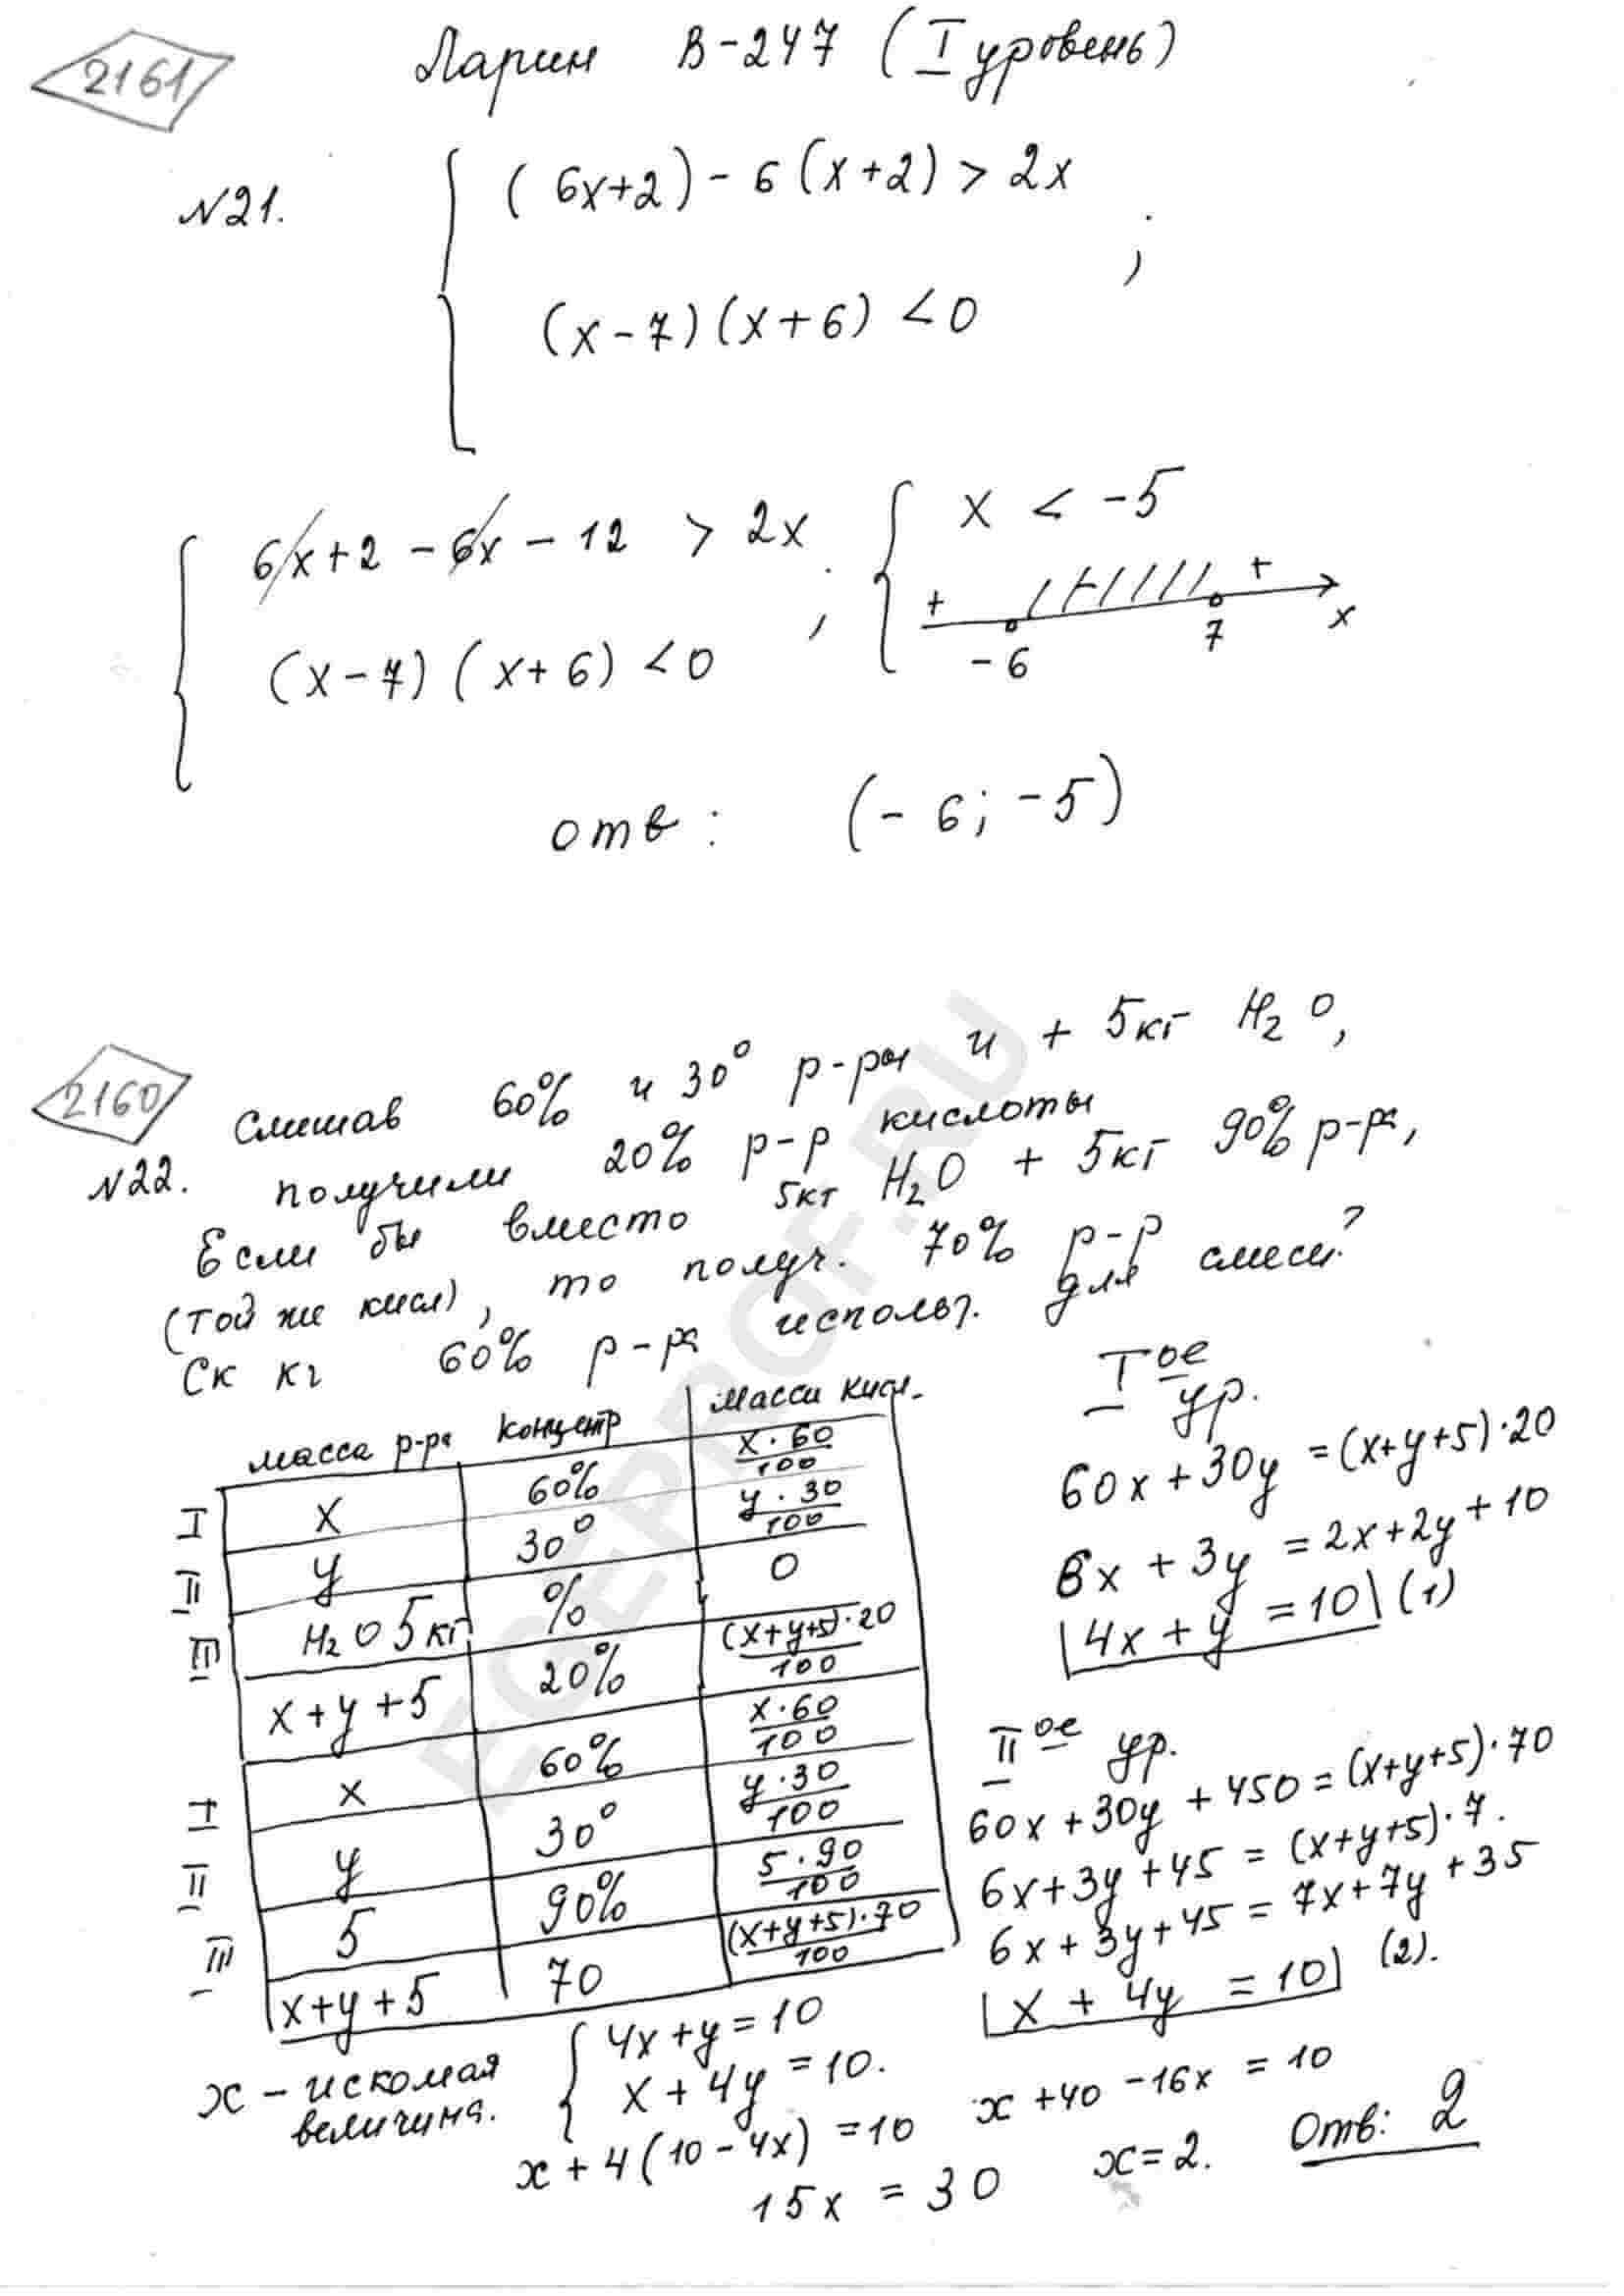 2161
Ларин В-247 (I уровень)
№21.
(6x+2) - 6(x+2) > 2x
;
(x-7)(x+6) < 0
6x+2 - 6x - 12 > 2x
;
(x-7)(x+6) < 0
x < -5
+ +
-6 7 x
отв: (-6; -5)
2160
№22.
Смешав 60% и 30° р-ры и + 5кг H₂O,
получили 20% р-р кислоты
Если бы вместо 5кг H₂O + 5кг 90% р-ра,
(той же кисл), то получ. 70% р-р
Ск кг 60% р-ра использ. для смеси?
масса р-ра концентр масса кисл.
I x 60% x·60/100
II y 30° y·30/100
III H₂O 5кг % 0
x+y+5 20% (x+y+5)·20/100
I x 60% x·60/100
II y 30° y·30/100
III 5 90% 5·90/100
x+y+5 70 (x+y+5)·70/100
Iое ур.
60x+30y = (x+y+5)·20
6x + 3y = 2x+2y+10
4x+y = 10 (1)
IIое ур.
60x+30y+450 = (x+y+5)·70
6x+3y+45 = (x+y+5)·7.
6x+3y+45 = 7x+7y+35
x + 4y = 10 (2).
x - искомая
величина.
4x+y = 10
x + 4y = 10.
x + 4(10 - 4x) = 10
x + 40 - 16x = 10
15x = 30
x = 2.
Отв: 2
EGEPROF.RU